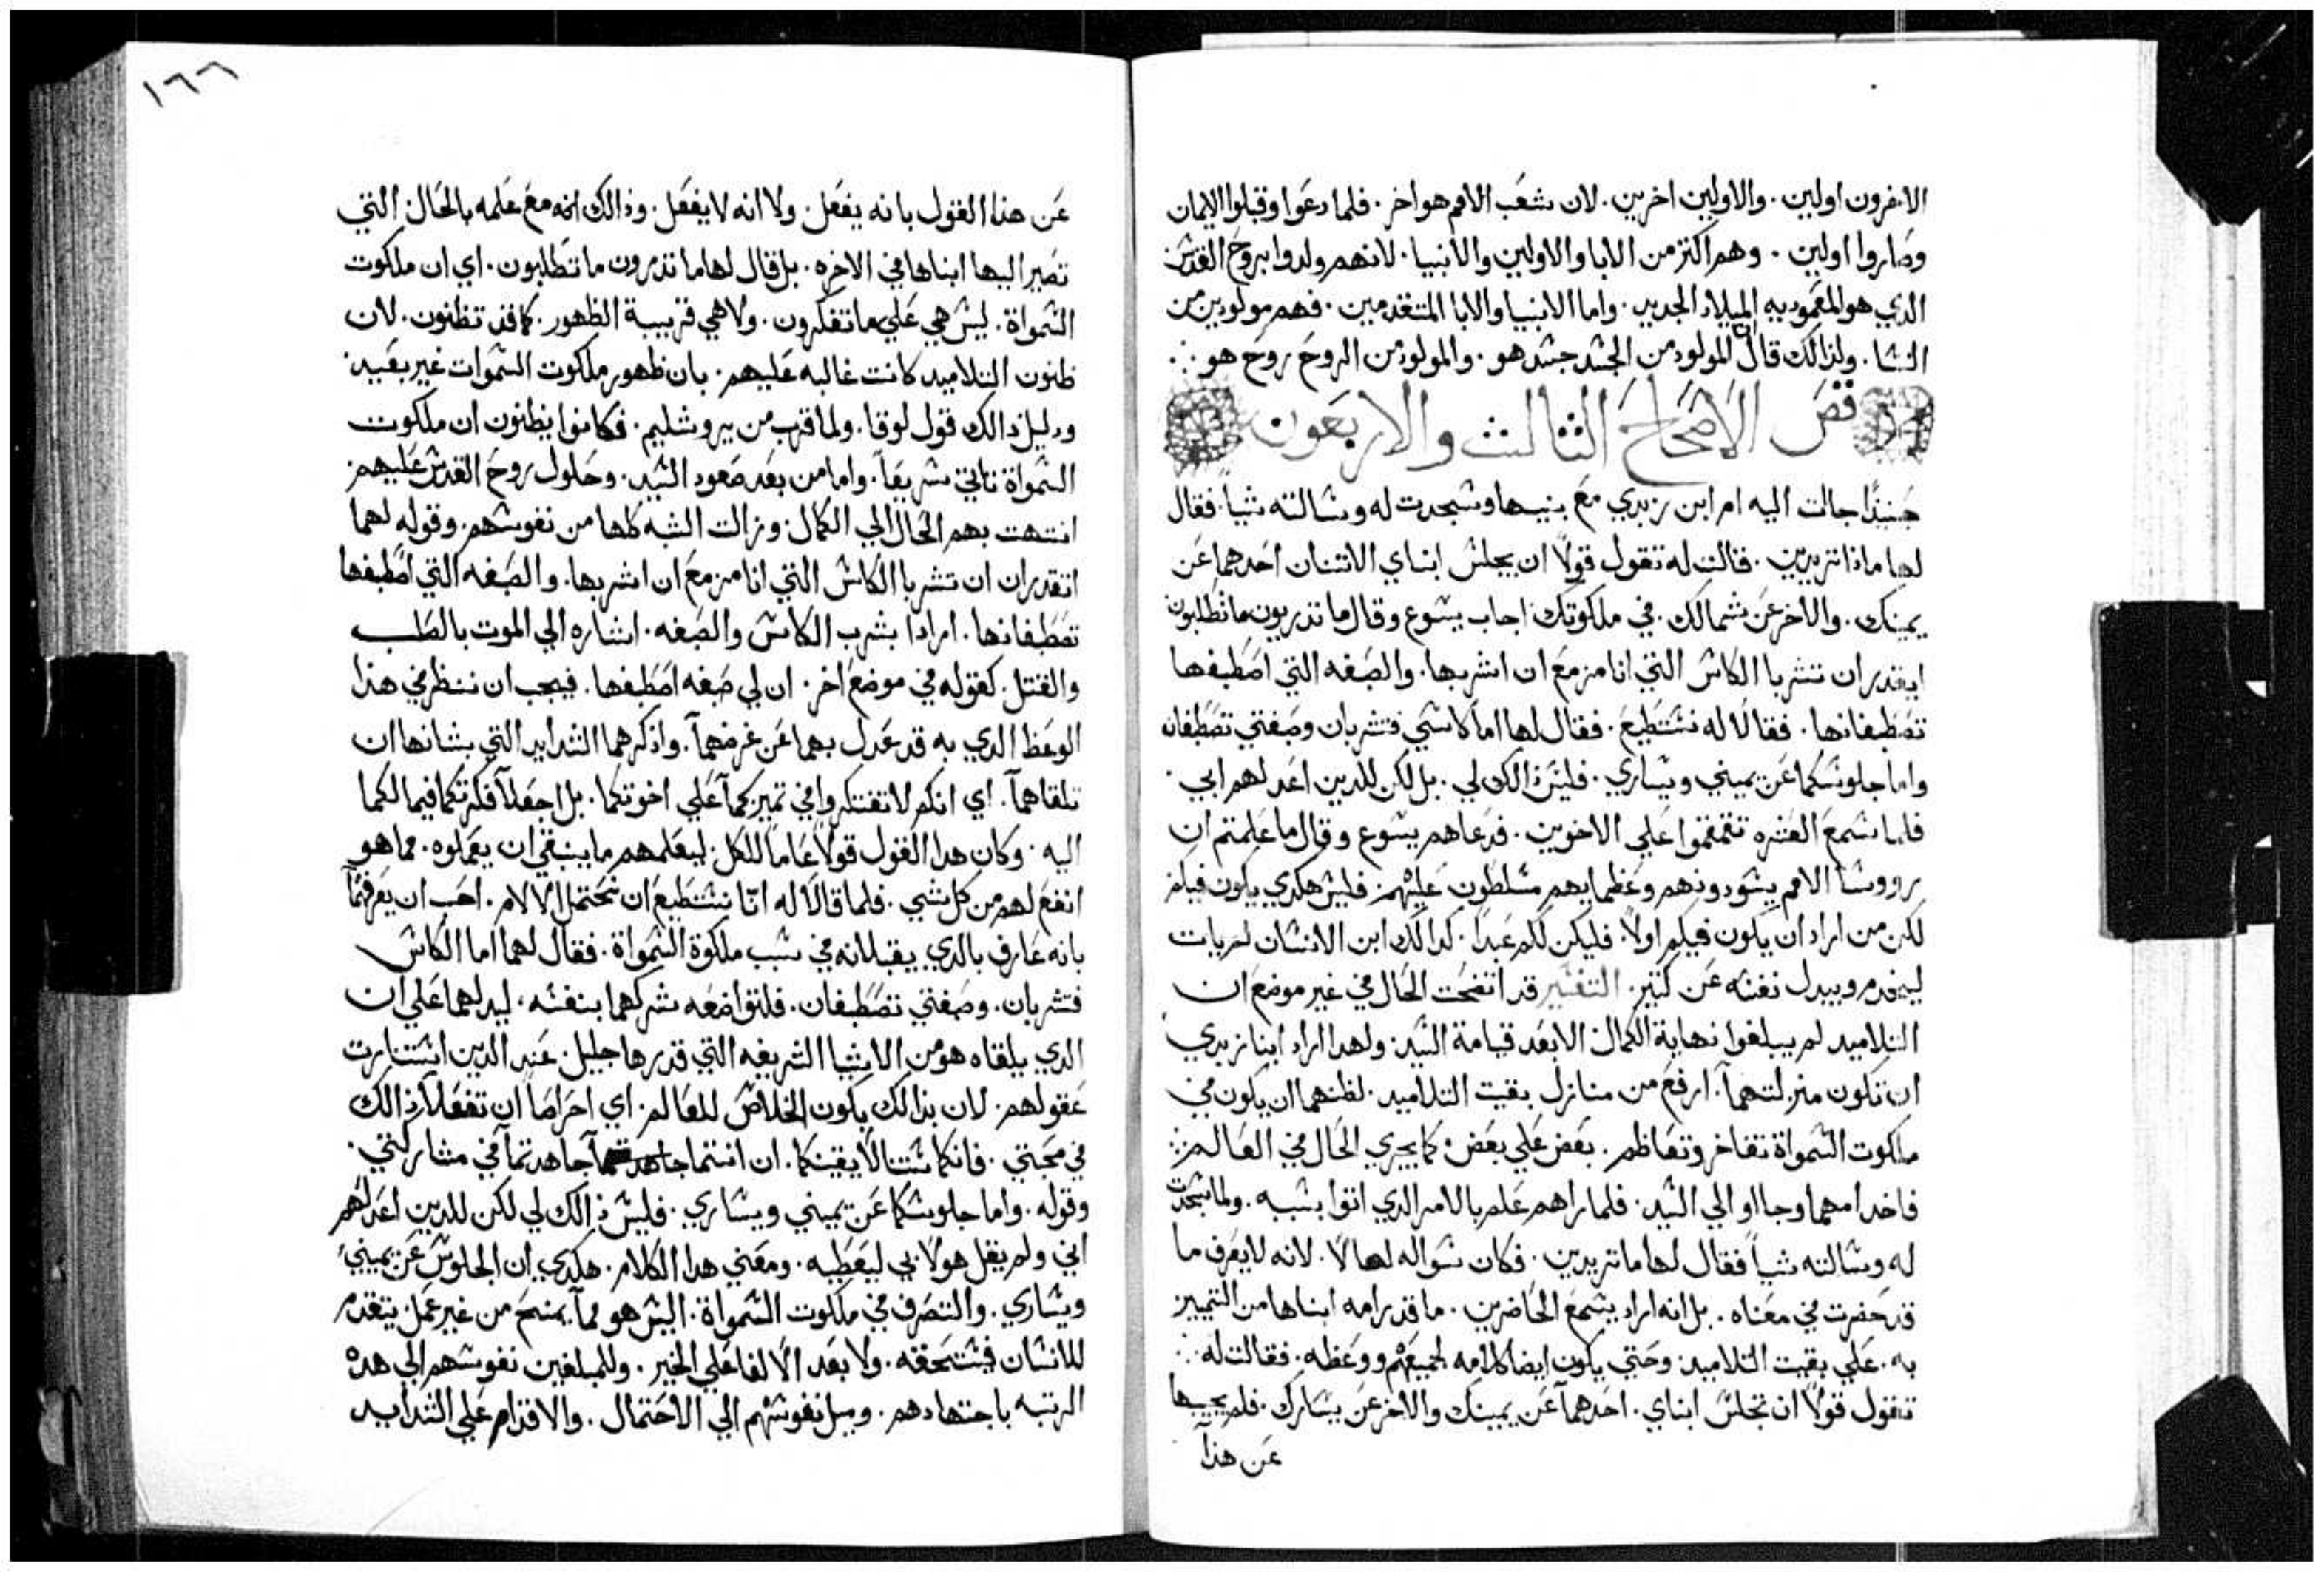 الاخرون اولين. والاولين اخرين. لان شعب الامم هو اخر. فلما دعوا وقبلوا الايمان
وصاروا اولين. وهم اكثر من الابا والاولين والانبيا. لانهم ولدوا بروح القدس
الدي هو المعموديه الميلاد الجديد. واما الانبيا والابا المتقدمين. فهم مولودين من
النسا. ولذالك قال المولود من الجسد جسد هو. والمولود من الروح روح هو
فص الاصحاح الثالث والاربعون
حينيدا جات اليه ام ابن زبدي مع بنيها وسجدت له وسالته شيا. فقال
لها ماذا تريدين. قالت له تقول قولا ان يجلس ابناي الاثنان احدهما عن
يمينك. والاخر عن شمالك. في ملكوتك اجاب يسوع وقال ما تدريون ما تطلبون
ايقدران تشربا الكاس التي انا مزمع ان اشربها. والصبغه التي اصطبغها
تصطبغانها. فقالا له نستطيع. فقال لها اما كاسي فتشربان وصبغتي تصطبغان
واما جلوسكما عن يميني ويساري. فليس ذالك لي. بل لكن للدين اعد لهم ابي.
فلما سمع العشره تقمقموا علي الاخوين. فدعاهم يسوع وقال ما علمتم ان
رووسا الامم يسودونهم وعظمايهم مسلطون عليهم. فليس هكدي يكون فيكم
لكن من اراد ان يكون فيكم اولا. فليكن لكم عبدا. كدالك ابن الانسان لم يات
ليخدم ويبدل نفسه عن كتير. التفسير قد اتضحت الحال في غير موضع ان
التلاميد لم يبلغوا نهاية الكمال الا بعد قيامة السيد. ولهدا اراد ابنا زبدي
ان تكون منزلتهما. ارفع من منازل بقيت التلاميد. لظنهما ان يكون في
ملكوت السمواة تفاخر وتعاظم. بعض علي بعض. كما يجري الحال في العالم
فاخدا امهما وجااو الي السيد. فلما راهم علم بالامر الدي اتوا بسببه. ولما سجدت
له وسالته شيا فقال لها ما تريدين. فكان سواله لها لا. لانه لا يعرف ما
قد حضرت في معناه. بل انه اراد يسمع الحاضرين. ما قد رامه ابناها من التمييز
به. علي بقيت التلاميد. وحتي يكون ايضا كلامه لجميعهم ووعظه. فقالت له
تقول قولا ان تجلس ابناي. احدهما عن يمينك والاخر عن يسارك. فلم يجيبها
عن هذا
١٦٦
عن هذا القول بانه يفعل. ولا انه لا يفعل. وذالك انه مع علمه بالحال التي
تصير اليها ابناها في الاخره. بل قال لها ما تدرون ما تطلبون. اي ان ملكوت
السمواة. ليس هي علي ما تفكرون. ولا هي قريبة الظهور. كما قد تظنون. لان
ظنون التلاميد كانت غالبه عليهم. بان ظهور ملكوت السموات غير بعيد
ودليل ذالك قول لوقا. ولما قرب من يروشليم. فكانوا يظنون ان ملكوت
السمواة تاتي سريعا. واما من بعد صعود السيد. وحلول روح القدس عليهم
انتهت بهم الحال الي الكمال. وزالت الشبه كلها من نفوسهم. وقوله لهما
اتقدران ان تشربا الكاس التي انا مزمع ان اشربها. والصبغه التي اصطبغها
تصطبغانها. ارادا بشرب الكاس والصبغه. اشاره الي الموت بالصلب
والقتل. كقوله في موضع اخر. ان لي صبغه اصطبغها. فيجب ان ننظر في هذا
الوعظ الدي به قد عدل بهما عن غرضهما. واذكرهما الشدايد التي بشانها ان
تلقاهما. اي انكم لا تفتكروا في تميزكما علي اخوتكما. بل اجعلا فكرتكما فيما لكما
اليه. وكان هدا القول قولا عاما للكل. ليعلمهم ما ينبغي ان يعملوه. مما هو
انفع لهم من كل شي. فلما قالا له انا نستطيع ان نحتمل الالام. احب ان يعرفهما
بانه عارف بالدي يقبلانه في سبب ملكوة السمواة. فقال لهما اما الكاس
فتشربان. وصبغتي تصطبغان. فلتواضعه شركهما بنفسه. ليدلهما علي ان
الدي يلقاه هو من الاشيا الشريفه التي قدرها جليل. عند الدين استنارت
عقولهم. لان بذالك يكون الخلاص للعالم. اي احراصا ان تفعلا ذالك
في محبتي. فانكما ستنالا يقينكما. ان انتما جاهدتما في مشاركتي.
وقوله. واما جلوسكما عن يميني ويساري. فليس ذالك لي لكن للدين اعد لهم
ابي ولم يقل هولا بي ليعطيه. ومعني هدا الكلام. هكدي ان الجلوس عن يميني
ويساري. والتصرف في ملكوت السمواة. اليس هو مما يمنح من غير عمل يتقدم
للانسان فيستحقه. ولا بعد الا لفاعلي الخير. وللمبلغين نفوسهم الي هده
الرتبه باجتهادهم. وميل نفوسهم الي الاحتمال. والاقدام علي الشدايد